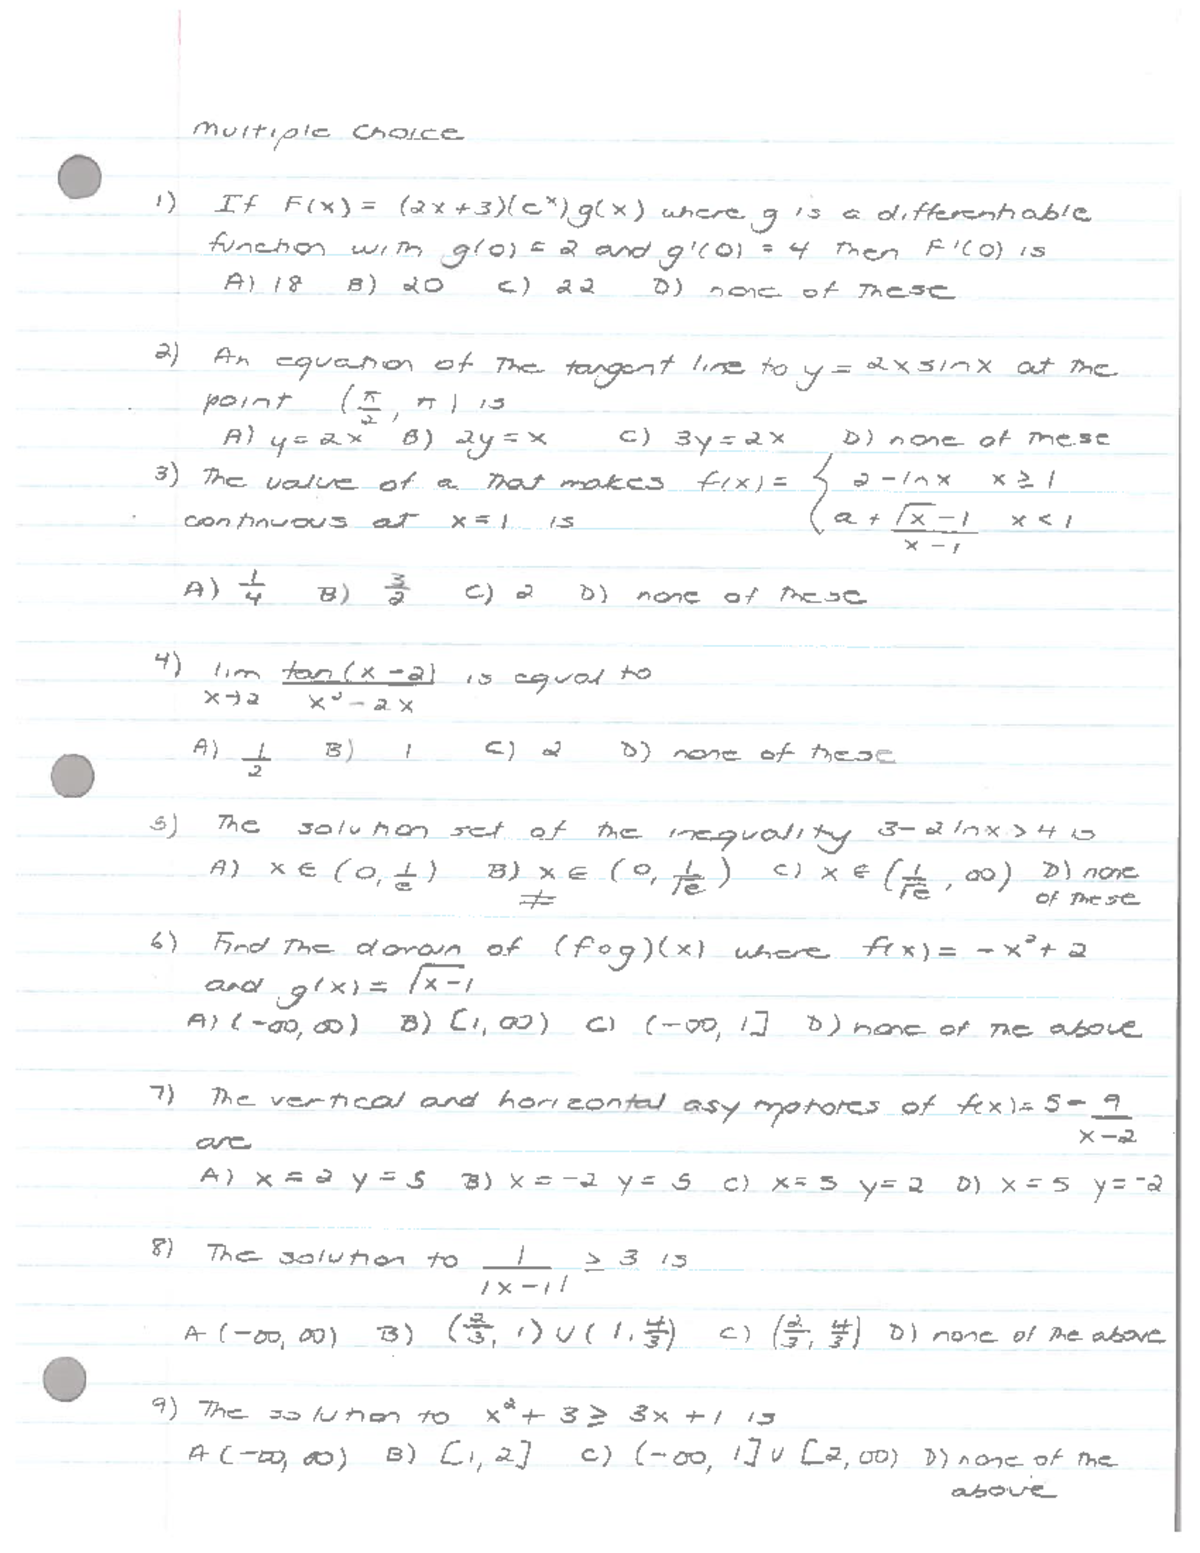 Multiple Choice
1) If F(x) = (2x+3)(e^x)g(x) where g is a differentiable
function with g(0) = 2 and g'(0) = 4 then F'(0) is
A) 18 B) 20 C) 22 D) none of these
2) An equation of the tangent line to y = 2x sin x at the
point (π/2, π) is
A) y = 2x B) 2y = x C) 3y = 2x D) none of these
3) The value of a that makes f(x) = { 2 - ln x x ≥ 1
continuous at x = 1 is a + (√x - 1)/(x - 1) x < 1
A) 1/4 B) 3/2 C) 2 D) none of these
4) lim x→2 tan(x-2)/(x² - 2x) is equal to
A) 1/2 B) 1 C) 2 D) none of these
5) The solution set of the inequality 3 - 2 ln x > 4 is
A) x ∈ (0, 1/e) B) x ∈ (0, 1/√e) C) x ∈ (1/√e, ∞) D) none
of these
6) Find the domain of (f∘g)(x) where f(x) = -x² + 2
and g(x) = √x-1
A) (-∞, ∞) B) [1, ∞) C) (-∞, 1] D) none of the above
7) The vertical and horizontal asymptotes of f(x) = 5 - 9/(x-2)
are
A) x = 2 y = 5 B) x = -2 y = 5 C) x = 5 y = 2 D) x = 5 y = -2
8) The solution to 1/|x-1| ≥ 3 is
A (-∞, ∞) B) (2/3, 1) ∪ (1, 4/3) C) (2/3, 4/3) D) none of the above
9) The solution to x² + 3 ≥ 3x + 1 is
A (-∞, ∞) B) [1, 2] C) (-∞, 1] ∪ [2, ∞) D) none of the
above